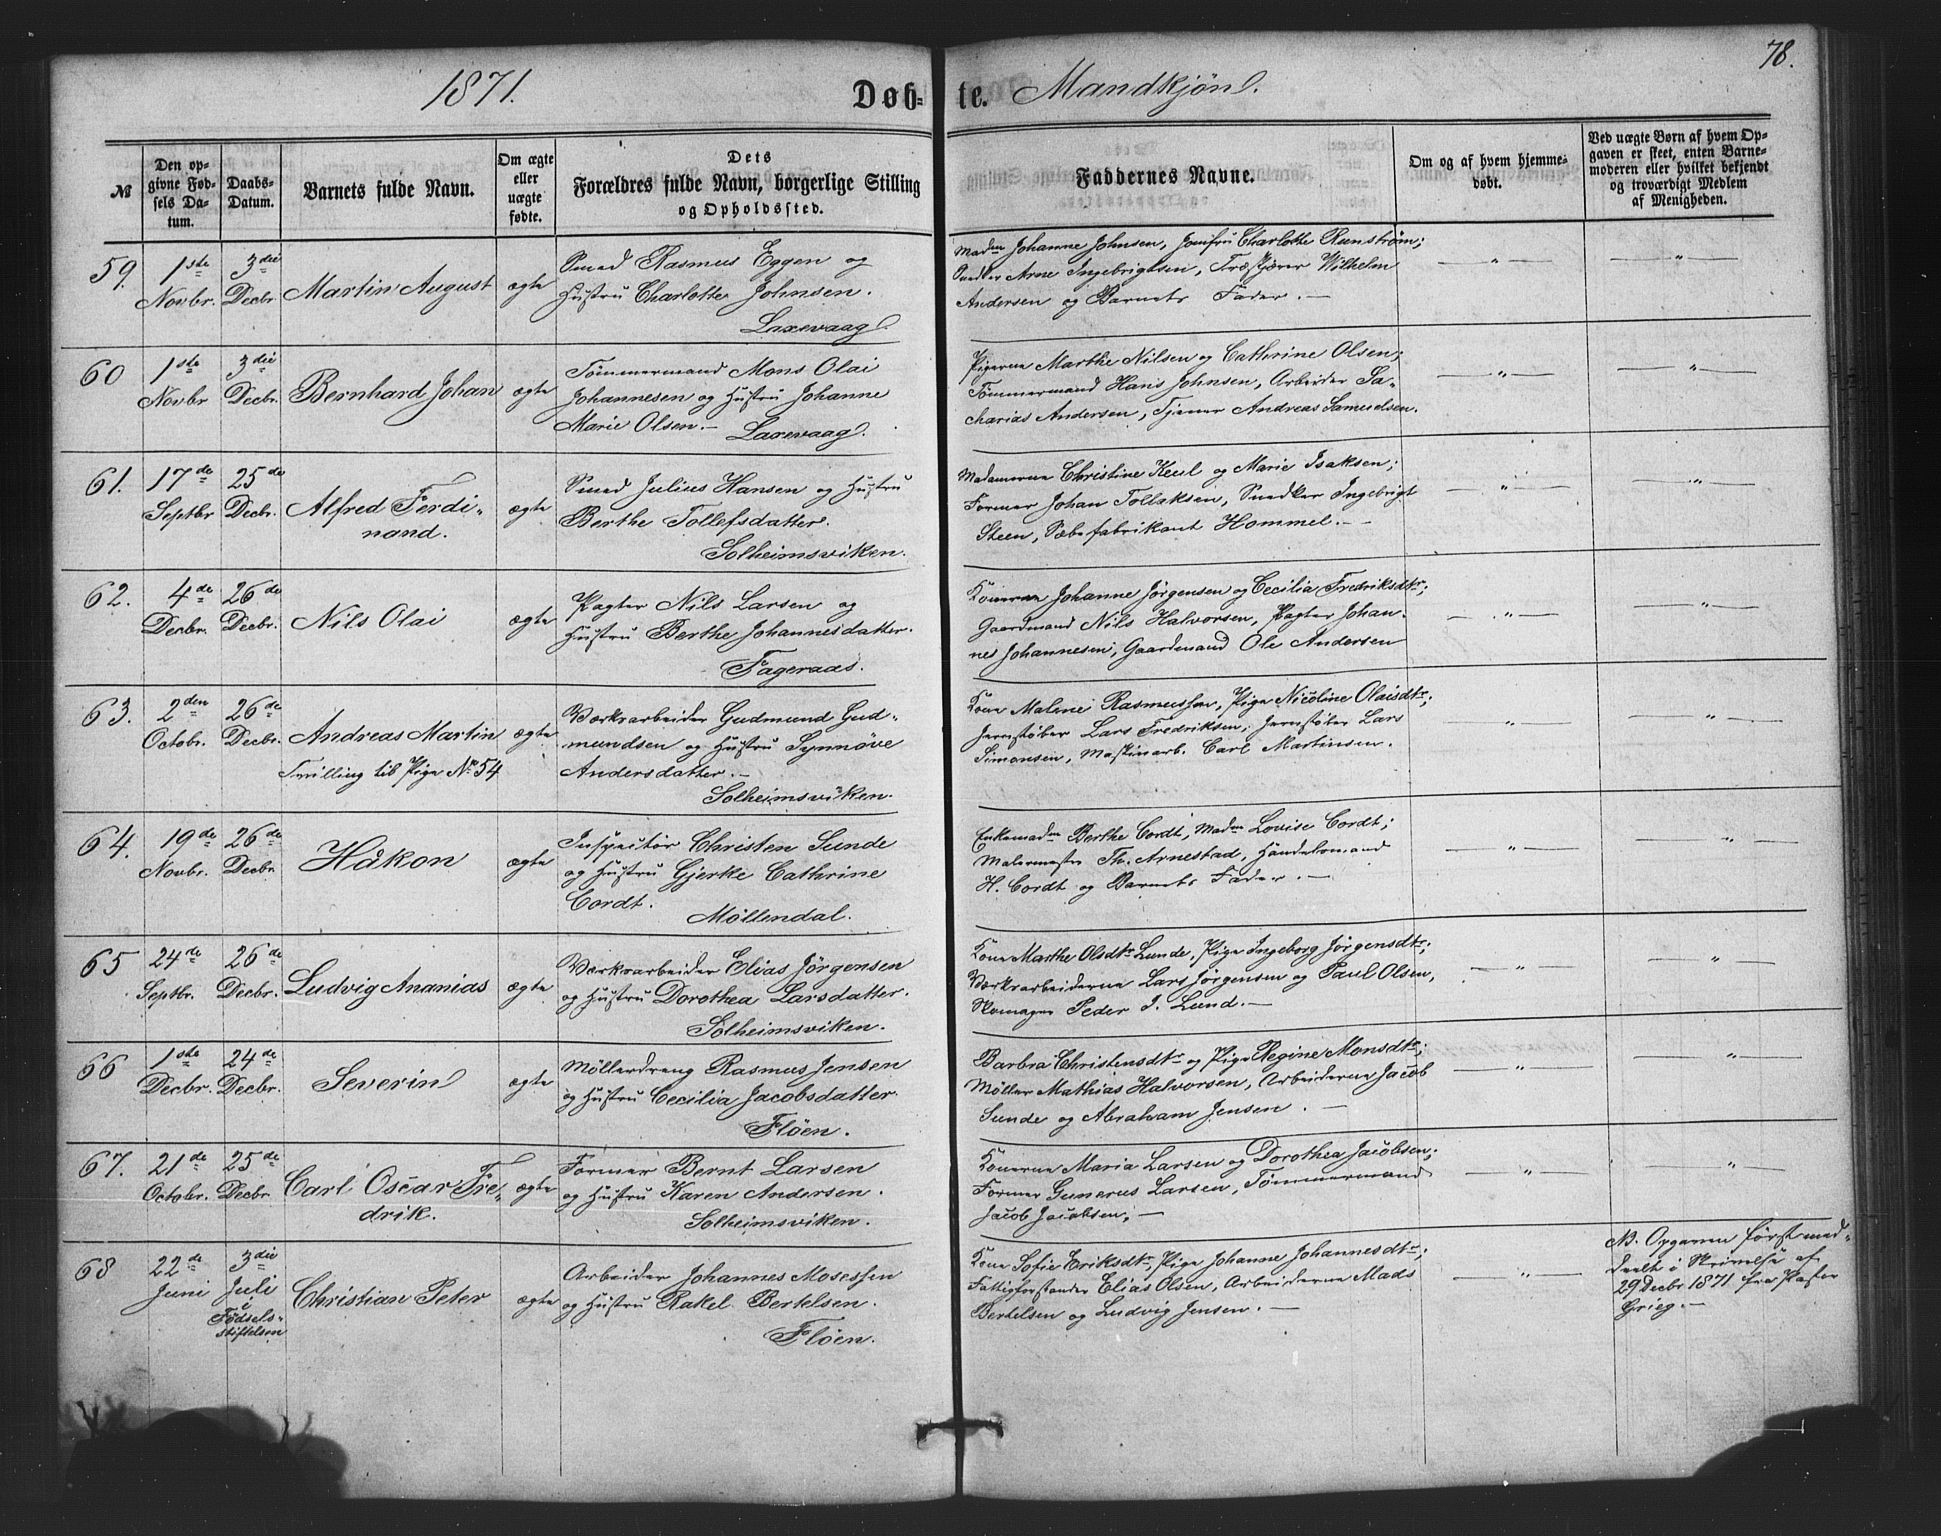 78.
1871.
Døb-te. Mandkjøn.
№
Den op-
givne Fød-
sels Da-
tum.
Daabs-
Datum.
Barnets fulde Navn.
Om ægte
eller
uægte
fødte.
Dets
Forældres fulde Navn, borgerlige Stilling
og Opholdssted.
Faddernes Navne.
Om og af hvem hjemme-
døbt.
Ved uægte Børn af hvem Op-
gaven er skeet, enten Barne-
moderen eller hvilket bekjendt
og troværdigt Medlem
af Menigheden.
59. 1ste Novbr. 3die Decbr. Martin August ægte
Smed Rasmus Eggen og
Hustru Charlotte Johnsen.
Laxevaag.
Madm Johanne Johnsen, Jomfru Charlotte Runström;
Snedker Arne Ingebrigtsen, Træskjærer Wilhelm
Andersen og Barnets Fader. —
— " — — " —
60 1ste Novbr 3die Decbr. Bernhard Johan ægte
Tømmermand Mons Olai
Johannesen og Hustru Johanne
Marie Olsen. — Laxevaag.
Pigerne Marthe Nilsen og Cathrine Olsen;
Tømmermand Hans Johnsen, Arbeider Sa-
charias Andersen, Tjener Andreas Samuelsen.
— " — — " —
61. 17de Septbr 25de Decbr. Alfred Ferdi-
nand. ægte
Smed Julius Hansen og Hustru
Berthe Tollefsdatter.
Solheimsviken.
Madamerne Christine Keul og Marie Isaksen;
Former Johan Tollaksen, Snedker Ingebrigt
Steen, Sæbefabrikant Hommel. —
— " — — " —
62. 4de Decbr. 26de Decbr. Nils Olai ægte
Pagter Nils Larsen og
Hustru Berthe Johannesdatter.
Fageraas.
Konerne Johanne Jørgensen og Cecilia Fredriksdtr;
Gaardmand Nils Halvorsen, Pagter Johan-
nes Johannesen, Gaardmand Ole Andersen
— " — — " —
63. 2den Octobr. 26de Decbr. Andreas Martin ægte
Tvilling til Pige No 54
Værksarbeider Gudmund Gud-
mundsen og Hustru Synnöve
Andersdatter. —
Solheimsviken.
Kone Malene Rasmussen, Pige Nicoline Olaisdtr;
Jernstøber Lars Fredriksen, Jernstøber Lars
Simonsen, Maskinarb. Carl Martinsen.
— " — — " —
64. 19de Novbr. 26de Decbr Håkon ægte
Inspectør Christen Sunde
og Hustru Gjerke Cathrine
Cordt.
Møllendal.
Enkemadm Berthe Cordt, Madm Lovise Cordt;
Malermester Th. Arnestad, Handelsmand
H. Cordt og Barnets Fader. —
— " — — " —
65 24de Septbr. 26de Decbr. Ludvig Ananias ægte
Værksarbeider Elias Jörgensen
og Hustru Dorothea Larsdatter.
Solheimsviken.
Kone Marthe Olsdtr Lunde, Pige Ingeborg Jörgensdtr;
Værksarbeiderne Lars Jörgensen og Paul Olsen,
Skomager Peder J. Lund. —
— " — — " —
66 1ste Decbr. 24de Decbr. Severin ægte
Møllerdreng Rasmus Jensen
og Hustru Cecilia Jacobsdatter.
Flöen.
Barbra Christensdtr og Pige Regine Monsdtr;
Møller Mathias Halvorsen, Arbeiderne Jacob
Sunde og Abraham Jensen. —
— " — — " —
67. 21de Octobr. 25de Decbr Carl Oscar Fre-
drik. ægte
Former Bernt Larsen
og Hustru Karen Andersen.
Solheimsviken.
Konerne Maria Larsen og Dorothea Jacobsen;
Former Gunerus Larsen, Tømmermand
Jacob Jacobsen. —
— " — — " —
68 22de Juni 3die Juli Fødsels-
stiftelsen Christian Peter ægte
Arbeider Johannes Mosessen
og Hustru Rakel Bertelsen.
Flöen.
Kone Sofie Eriksdtr, Pige Johanne Johannesdtr;
Fattigforstander Elias Olsen, Arbeiderne Mads
Bertelsen og Ludvig Jensen. —
— " —
NB. Opgaven først med-
deelt i Skrivelse af
29 Decbr 1871 fra Pastor
Grieg. —